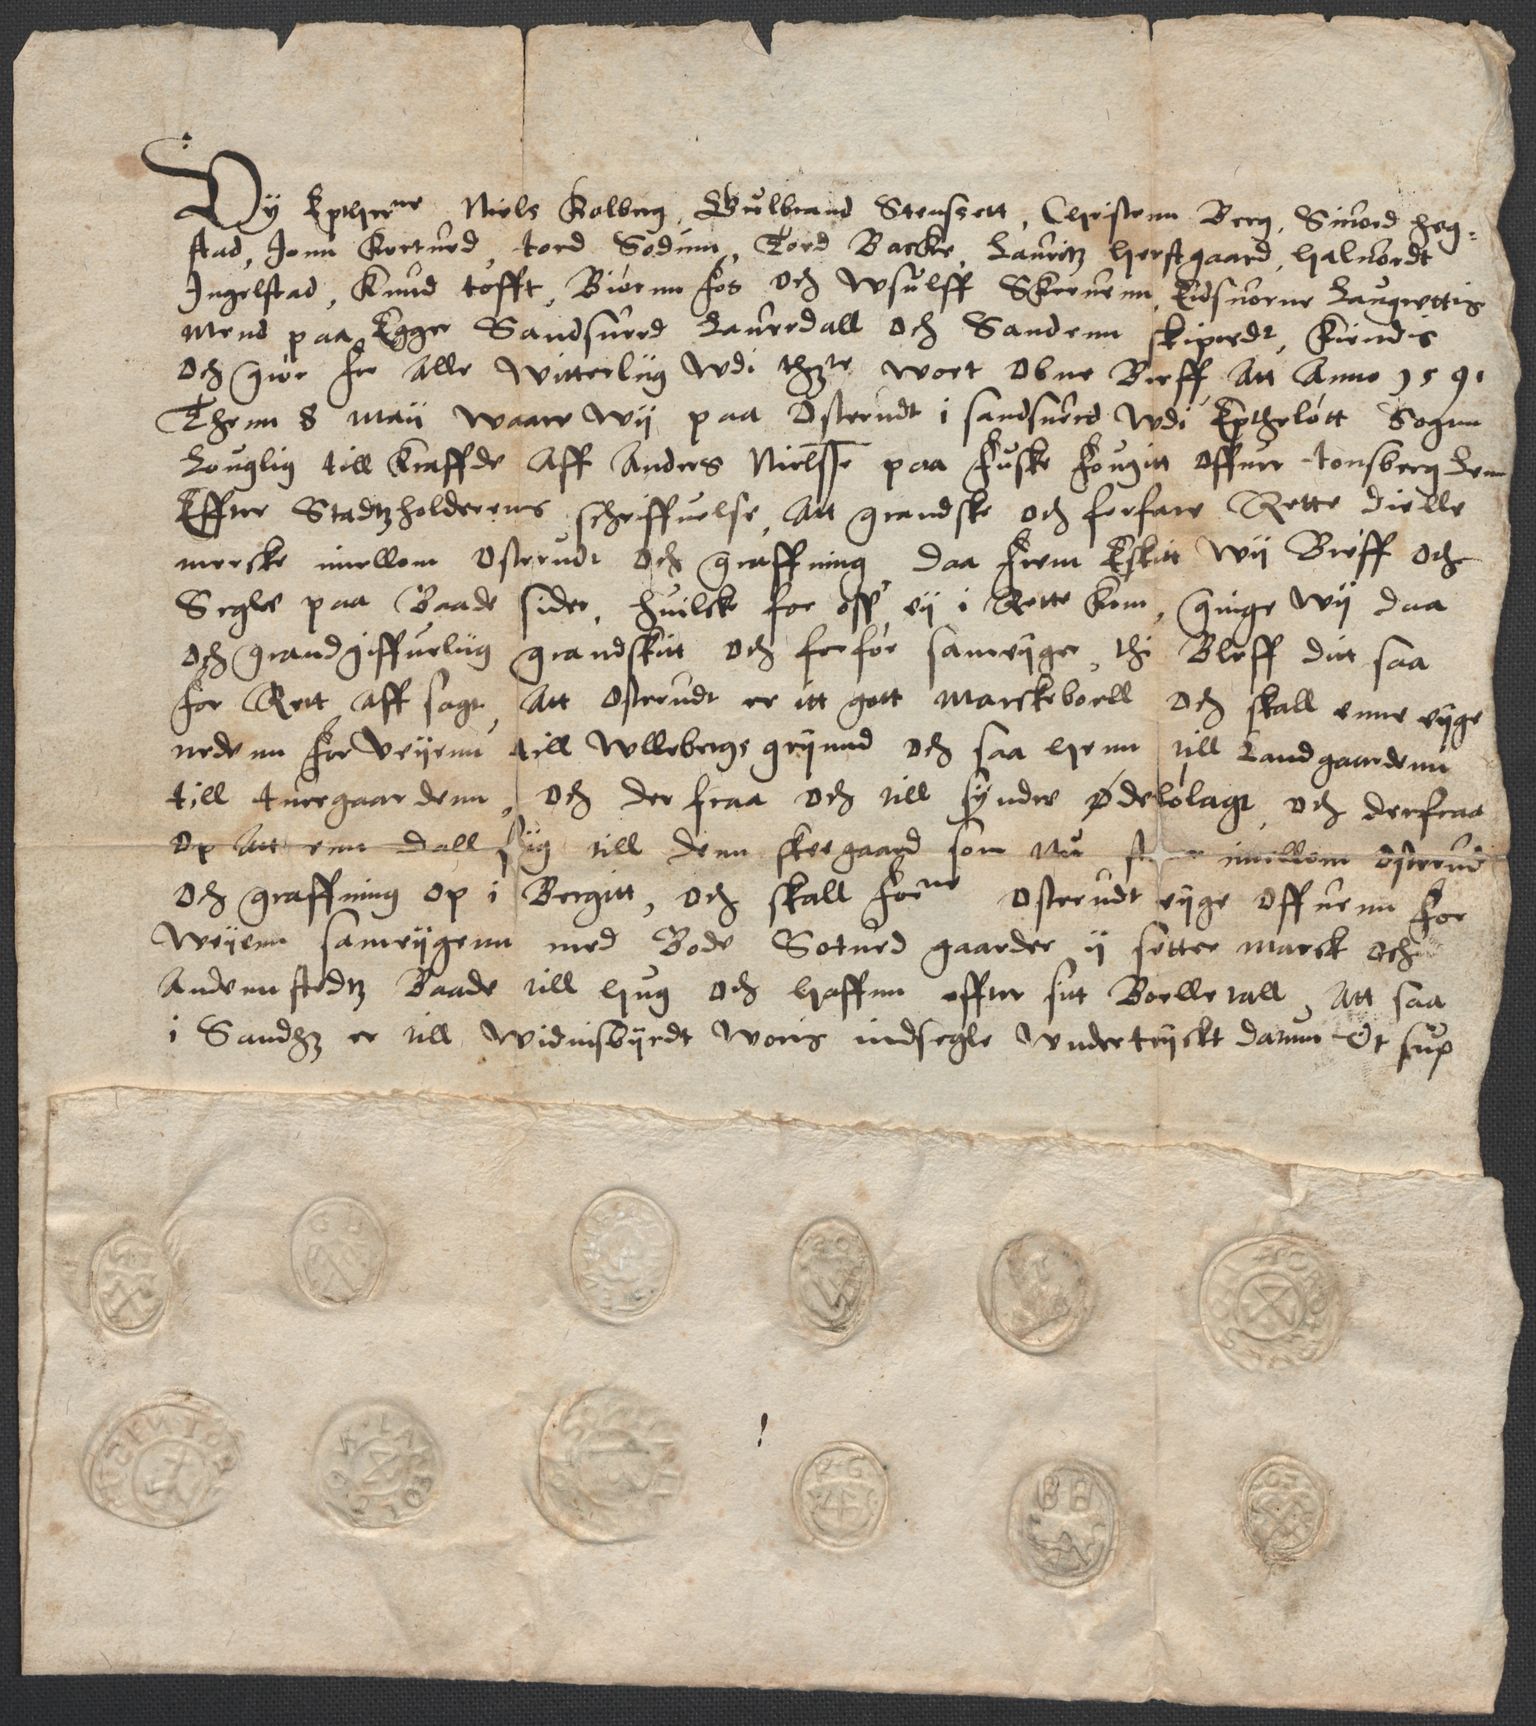 Wij Epther ne Niels Kolberg, Gulbrand Stenssett, Christenn Berg, Siuord Heg=
stad, Jonn Kortued, tord Sodum, Tord Backe, Lauritz herstgaard, halvordt
Ingelstad, Knud tofft, Biørnn Fos och Wsulff Skrenenn, Edsuorne Laugrettis
mend paa Egger Sandsuerd Lauerdall och Sandenn skiperdt, Kiendis
och giør for Alle Witterlig Wdi thette wort obne Breff, Att Anno 1591
Thenn 8 Maij waare Wij paa Osterudt i sandsuerd Wdi Eptheløtt Sogenn
Louglig till Kraffde Aff Anders Nielssøn paa Fuske Fougitt offuer tonsberg Lenn
Effter Stadtzholderens schriffuelse, Att grandske och forfare Rette dielle
mercke imellom Osterudt och graffning daa Frem Eskitt Wij Breff och
Segle paa Baade sider, huilcke for oss ey i Rette kom, ginge Wij daa
och grandgiffuelig grandskitt och forfor sameyger, thi Bleff ditt saa
for Rett Aff sagt, Att Osterudt er itt gott Marckeboell och skall enne eyge
nedenn For Veyenn till Wllebergs grijnnd och saa henn till Landgaardenn
till tuergaardenn, och der fraa och till Syndre Ødelølagt, och derfraa
op Att enn dall sig till denn skee gaard som nu imellom Osterud
och graffning op i Bergitt, och skall for ne Osterudt eyge offuenn For
Weyenn sameygenn med Bode Sotued gaarder ij setter Marck och
Andenn stedtz Baade till hug och haffnn effter sitt Boelle tall, Att saa
i Sandhz er till Widnisbyrdt Woris indsegle Wnder tryckt datum Vt sup